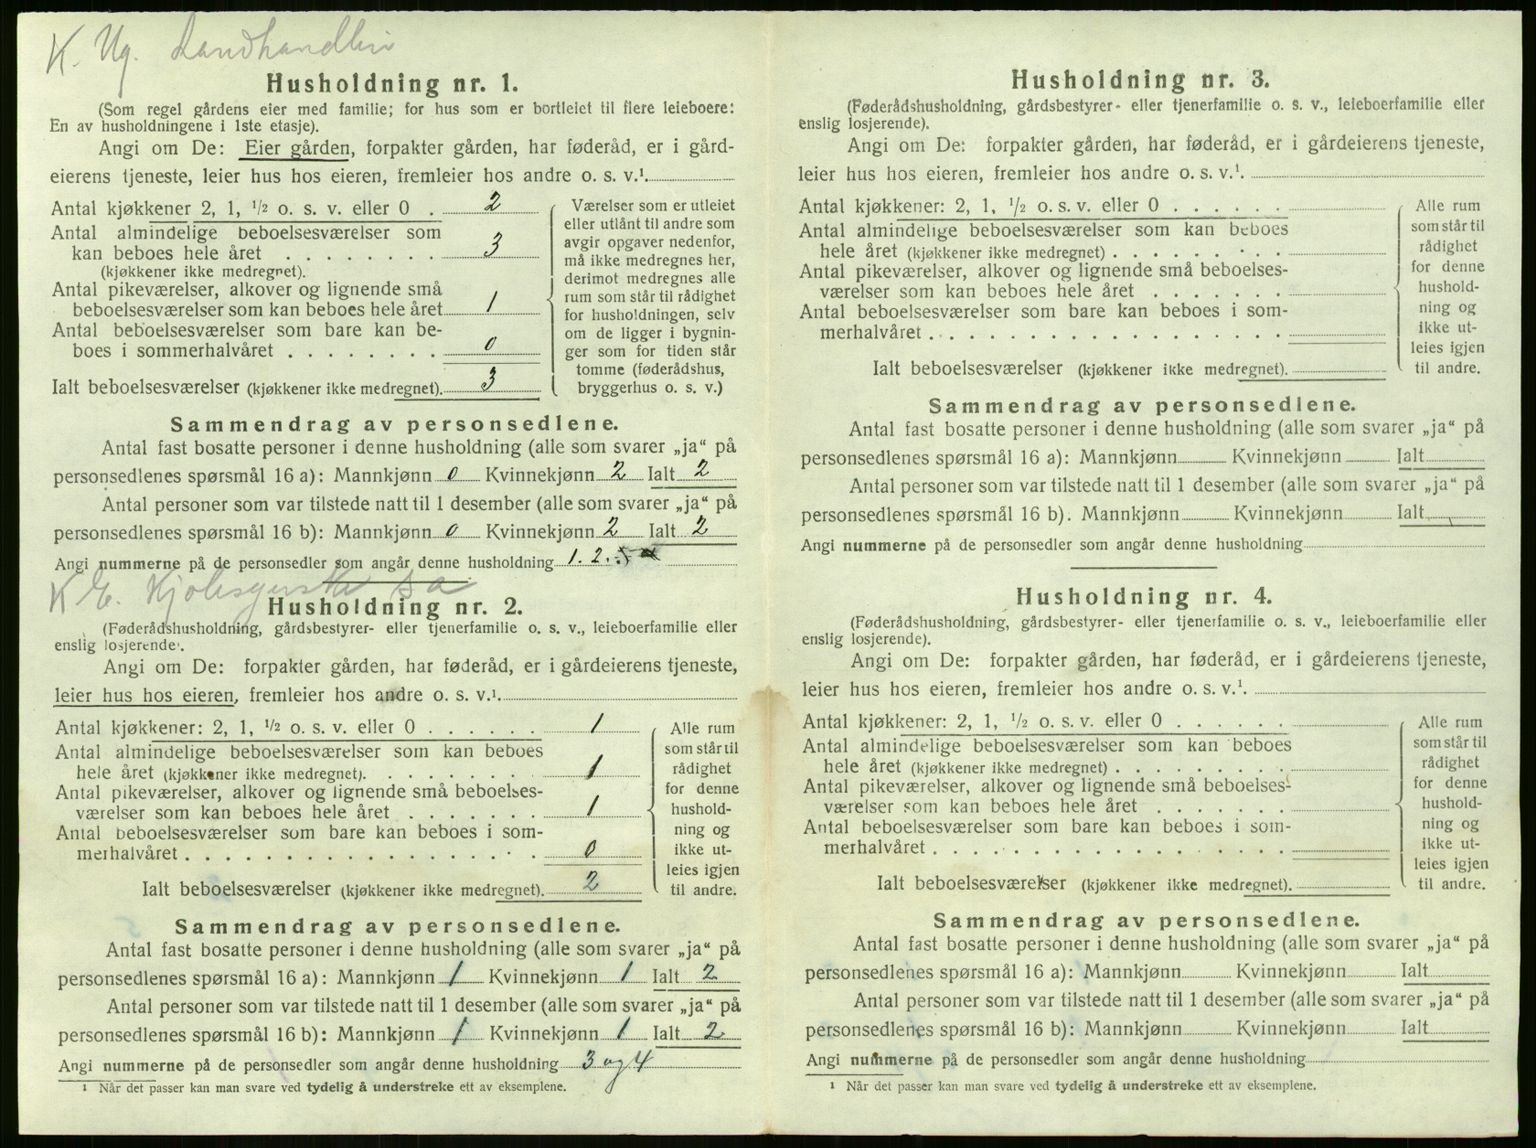 K. Ug. Landhandlin
Husholdning nr. 1.
(Som regel gårdens eier med familie; for hus som er bortleiet til flere leieboere:
En av husholdningene i 1ste etasje).
Angi om De: Eier gården, forpakter gården, har føderåd, er i gård-
eierens tjeneste, leier hus hos eieren, fremleier hos andre o. s. v.¹
Antal kjøkkener 2, 1, ½ o. s. v. eller 0 . 2
Antal almindelige beboelsesværelser som
kan beboes hele året . . . . . . . . 3
(kjøkkener ikke medregnet).
Antal pikeværelser, alkover og lignende små
beboelsesværelser som kan beboes hele året 1
Antal beboelsesværelser som bare kan be-
boes i sommerhalvåret . . . . . . . . 0
Ialt beboelsesværelser (kjøkkener ikke medregnet). 3
Værelser som er utleiet
eller utlånt til andre som
avgir opgaver nedenfor,
må ikke medregnes her,
derimot medregnes alle
rum som står til rådighet
for husholdningen, selv
om de ligger i bygnin-
ger som for tiden står
tomme (føderådshus,
bryggerhus o. s. v.)
Sammendrag av personsedlene.
Antal fast bosatte personer i denne husholdning (alle som svarer „ja“ på
personsedlenes spørsmål 16 a): Mannkjønn 0 Kvinnekjønn 2 Ialt 2
Antal personer som var tilstede natt til 1 desember (alle som svarer „ja“ på
personsedlenes spørsmål 16 b): Mannkjønn 0 Kvinnekjønn 2 Ialt 2
Angi nummerne på de personsedler som angår denne husholdning 1. 2.
K E.
Husholdning nr. 2.
(Føderådshusholdning, gårdsbestyrer- eller tjenerfamilie o. s. v., leieboerfamilie eller
enslig losjerende).
Angi om De: forpakter gården, har føderåd, er i gårdeierens tjeneste,
leier hus hos eieren, fremleier hos andre o. s. v.¹.
Antal kjøkkener: 2, 1, ½ o. s. v. eller 0 . . . . . . 1
Antal almindelige beboelsesværelser som kan beboes
hele året (kjøkkener ikke medregnet). . . . . . . . . 1
Antal pikeværelser, alkover og lignende små beboelses-
værelser som kan beboes hele året . . . . . . . 1
Antal beboelsesværelser som bare kan beboes i som-
merhalvåret . . . . . . . . . . . . . . . . . 0
Ialt beboelsesværelser (kjøkkener ikke medregnet). 2
Alle rum
som står til
rådighet
for denne
hushold-
ning og
ikke ut-
leies igjen
til andre.
Sammendrag av personsedlene.
Antal fast bosatte personer i denne husholdning (alle som svarer „ja“ på
personsedlenes spørsmål 16 a): Mannkjønn 1 Kvinnekjønn 1 Ialt 2
Antal personer som var tilstede natt til 1 desember (alle som svarer „ja“ på
personsedlenes spørsmål 16 b): Mannkjønn 1 Kvinnekjønn 1 Ialt 2
Angi nummerne på de personsedler som angår denne husholdning 3 og 4
¹ Når det passer kan man svare ved tydelig å understreke ett av eksemplene.
Husholdning nr. 3.
(Føderådshusholdning, gårdsbestyrer- eller tjenerfamilie o. s. v., leieboerfamilie eller
enslig losjerende).
Angi om De: forpakter gården, har føderåd, er i gårdeierens tjeneste,
leier hus hos eieren, fremleier hos andre o. s. v.¹.
Antal kjøkkener: 2, 1, ½ o. s. v. eller 0 . . . . . .
Antal almindelige beboelsesværelser som kan beboes
hele året (kjøkkener ikke medregnet) . . . . . . . . .
Antal pikeværelser, alkover og lignende små beboelses-
værelser som kan beboes hele året . . . . . . .
Antal beboelsesværelser som bare kan beboes i som-
merhalvåret . . . . . . . . . . . . . . . . .
Ialt beboelsesværelser (kjøkkener ikke medregnet).
Alle rum
som står til
rådighet
for denne
hushold-
ning og
ikke ut-
leies igjen
til andre.
Sammendrag av personsedlene.
Antal fast bosatte personer i denne husholdning (alle som svarer „ja“ på
personsedlenes spørsmål 16 a): Mannkjønn Kvinnekjønn Ialt
Antal personer som var tilstede natt til 1 desember (alle som svarer „ja“ på
personsedlenes spørsmål 16 b). Mannkjønn Kvinnekjønn Ialt
Angi nummerne på de personsedler som angår denne husholdning
Husholdning nr. 4.
(Føderådshusholdning, gårdsbestyrer- eller tjenerfamilie o. s. v., leieboerfamilie eller
enslig losjerende).
Angi om De: forpakter gården, har føderåd, er i gårdeierens tjeneste,
leier hus hos eieren, fremleier hos andre o. s. v.¹.
Antal kjøkkener: 2, 1, ½ o. s. v. eller 0 . . . . . .
Antal almindelige beboelsesværelser som kan beboes
hele året (kjøkkener ikke medregnet) . . . . . . . . .
Antal pikeværelser, alkover og lignende små beboelses-
værelser som kan beboes hele året . . . . . . .
Antal beboelsesværelser som bare kan beboes i som-
merhalvåret . . . . . . . . . . . . . . . . .
Ialt beboelsesværelser (kjøkkener ikke medregnet).
Alle rum
som står til
rådighet
for denne
hushold-
ning og
ikke ut-
leies igjen
til andre.
Sammendrag av personsedlene.
Antal fast bosatte personer i denne husholdning (alle som svarer „ja“ på
personsedlenes spørsmål 16 a): Mannkjønn Kvinnekjønn Ialt
Antal personer som var tilstede natt til 1 desember (alle som svarer „ja“ på
personsedlenes spørsmål 16 b): Mannkjønn Kvinnekjønn Ialt
Angi nummerne på de personsedler som angår denne husholdning
¹ Når det passer kan man svare ved tydelig å understreke ett av eksemplene.